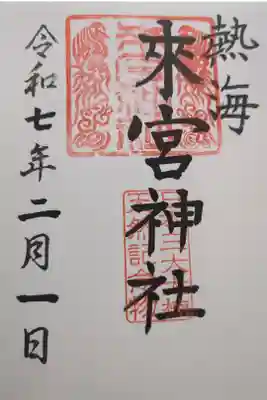 熱海
來宮神社
令和七年二月一日